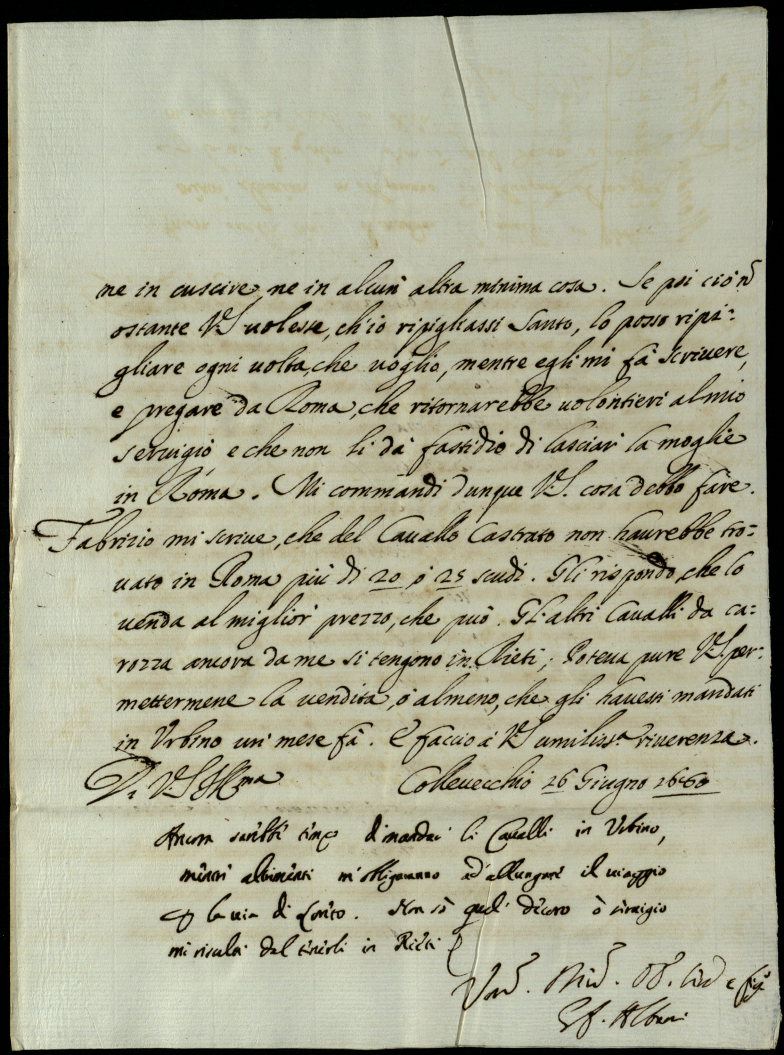 ne in cuscire, ne in alcun' altra minima cosa. Se poi ciò nõ
ostante V.S. uolesse, ch'io ripigliassi Santo, lo posso ripi-
gliare ogni uolta, che uoglio, mentre egli mi fà scriuere,
e pregare da Roma, che ritornarebbe uolontieri al mio
seruigio e che non li dà fastidio di lasciar la moglie
in Roma. Mi commandi dunque V.S. cosa debbo fare.
Fabrizio mi scriue, che del Cauallo Castrato non haurebbe tro-
uato in Roma più di 20 ò 25 scudi. Gli rispondo, che lo
uenda al miglior prezzo, che può. Gl'altri Caualli da ca-
rozza ancora da me si tengono in Rieti; Poteua pure V.S. per-
mettermene la uendita, ò almeno, che gli hauessi mandati
in Vrbino un mese fà. E faccio à V.S. umiliss.ª riuerenza.
Di V.S. Ill.ma Colleuecchio 26 Giugno 1660
Ancora sarebbe tempo di mandar li Caualli in Vrbino,
mentre altrimenti m'obligaranno ad allungare il uiaggio
la uia di Loreto. Non sò qual decoro ò seruigio
mi risulti dal tenerli in Rieti
e fig.
Gf. Albani